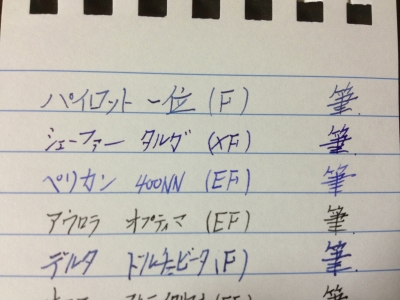 パイロット 一位 (F) 筆.
シェーファー タルガ (XF) 筆.
ペリカン 400NN (EF) 筆.
アウロラ オプティマ (EF) 筆.
デルタ ドルチェビータ (F) 筆.